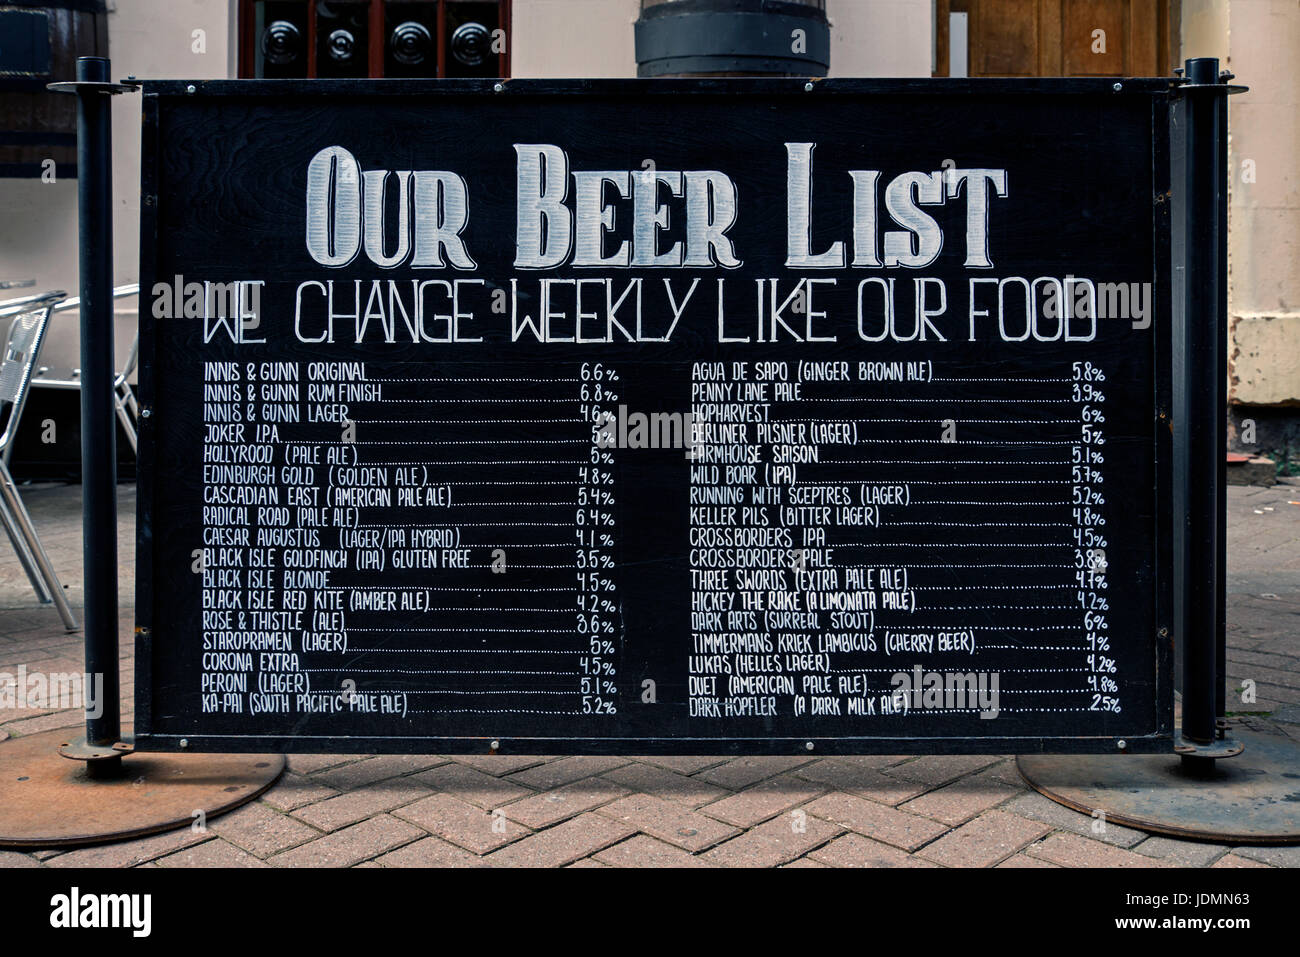 OUR BEER LIST
WE CHANGE WEEKLY LIKE OUR FOOD
INNIS & GUNN ORIGINAL 6.6%
INNIS & GUNN RUM FINISH 6.8%
INNIS & GUNN LAGER 4.6%
JOKER I.P.A. 5%
HOLLYROOD (PALE ALE) 5%
EDINBURGH GOLD (GOLDEN ALE) 4.8%
CASCADIAN EAST (AMERICAN PALE ALE) 5.4%
RADICAL ROAD (PALE ALE) 6.4%
CAESAR AUGUSTUS (LAGER/IPA HYBRID) 4.1%
BLACK ISLE GOLDFINCH (IPA) GLUTEN FREE 3.5%
BLACK ISLE BLONDE 4.5%
BLACK ISLE RED KITE (AMBER ALE) 4.2%
ROSE & THISTLE (ALE) 3.6%
STAROPRAMEN (LAGER) 5%
CORONA EXTRA 4.5%
PERONI (LAGER) 5.1%
KA-PAI (SOUTH PACIFIC PALE ALE) 5.2%
AGUA DE SAPO (GINGER BROWN ALE) 5.8%
PENNY LANE PALE 3.9%
HOPHARVEST 6%
BERLINER PILSNER (LAGER) 5%
FARMHOUSE SAISON 5.1%
WILD BOAR (IPA) 5.7%
RUNNING WITH SCEPTRES (LAGER) 5.2%
KELLER PILS (BITTER LAGER) 4.8%
CROSSBORDERS IPA 4.5%
CROSSBORDERS PALE 3.8%
THREE SWORDS (EXTRA PALE ALE) 4.7%
HICKEY THE RAKE (A LIMONATA PALE) 4.2%
DARK ARTS (SURREAL STOUT) 6%
TIMMERMANS KRIEK LAMBICUS (CHERRY BEER) 4%
LUKAS (HELLES LAGER) 4.2%
DUET (AMERICAN PALE ALE) 4.8%
DARK HOPFLER (A DARK MILK ALE) 2.5%
alamy stock photo
JDMN63
www.alamy.com